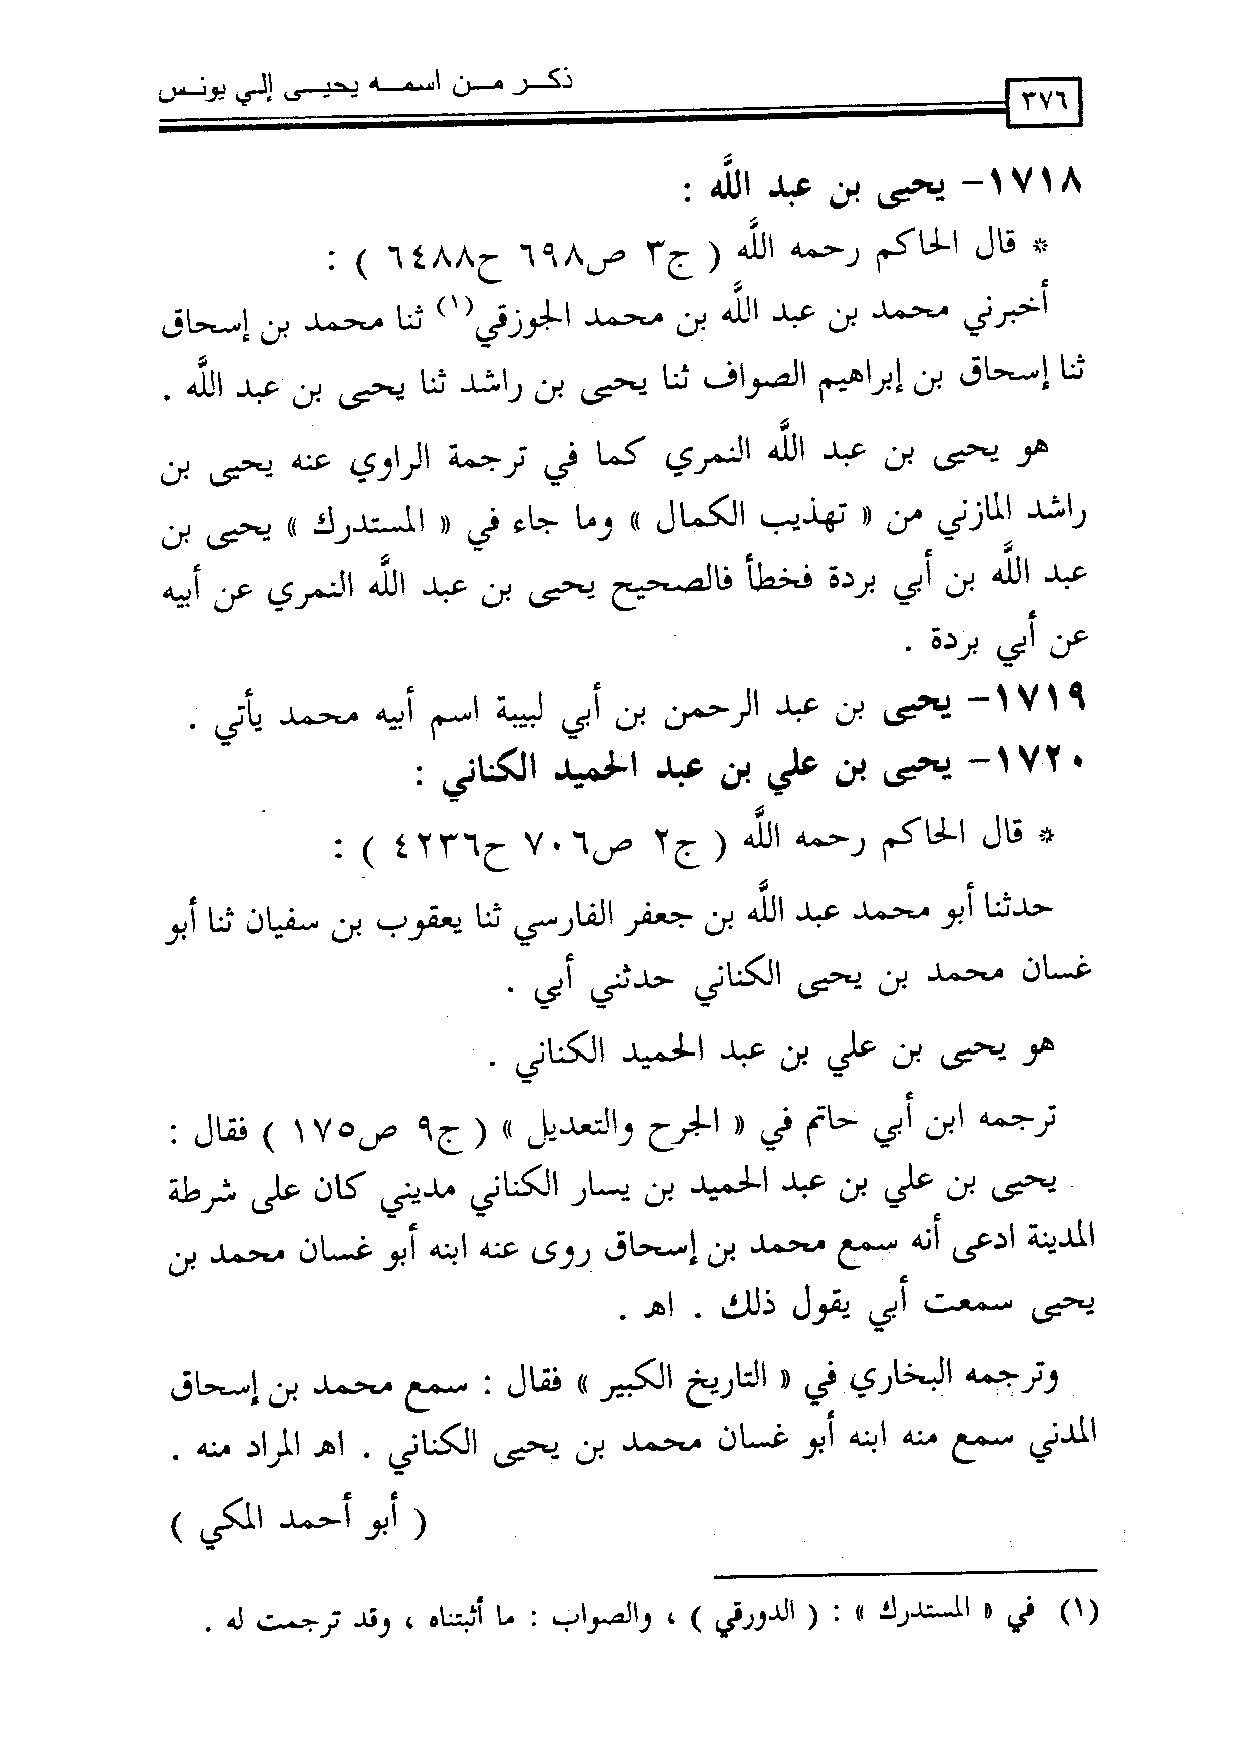 ذكر من اسمه يحيى إلي يونس
٣٧٦
١٧١٨- يحيى بن عبد اللَّه :
* قال الحاكم رحمه اللَّه ( ج٣ ص٦٩٨ ح٦٤٨٨ ) :
أخبرني محمد بن عبد اللَّه بن محمد الجوزقي(١) ثنا محمد بن إسحاق
ثنا إسحاق بن إبراهيم الصواف ثنا يحيى بن راشد ثنا يحيى بن عبد اللَّه .
هو يحيى بن عبد اللَّه النمري كما في ترجمة الراوي عنه يحيى بن
راشد المازني من « تهذيب الكمال » وما جاء في « المستدرك » يحيى بن
عبد اللَّه بن أبي بردة فخطأ فالصحيح يحيى بن عبد اللَّه النمري عن أبيه
عن أبي بردة .
١٧١٩- يحيى بن عبد الرحمن بن أبي لبيبة اسم أبيه محمد يأتي .
١٧٢٠- يحيى بن علي بن عبد الحميد الكناني :
* قال الحاكم رحمه اللَّه ( ج٢ ص٧٠٦ ح٤٢٣٦ ) :
حدثنا أبو محمد عبد اللَّه بن جعفر الفارسي ثنا يعقوب بن سفيان ثنا أبو
غسان محمد بن يحيى الكناني حدثني أبي .
هو يحيى بن علي بن عبد الحميد الكناني .
ترجمه ابن أبي حاتم في « الجرح والتعديل » ( ج٩ ص١٧٥ ) فقال :
يحيى بن علي بن عبد الحميد بن يسار الكناني مديني كان على شرطة
المدينة ادعى أنه سمع محمد بن إسحاق روى عنه ابنه أبو غسان محمد بن
يحيى سمعت أبي يقول ذلك . اهـ .
وترجمه البخاري في « التاريخ الكبير » فقال : سمع محمد بن إسحاق
المدني سمع منه ابنه أبو غسان محمد بن يحيى الكناني . اهـ المراد منه .
( أبو أحمد المكي )
(١) في « المستدرك » : ( الدورقي ) ، والصواب : ما أثبتناه ، وقد ترجمت له .